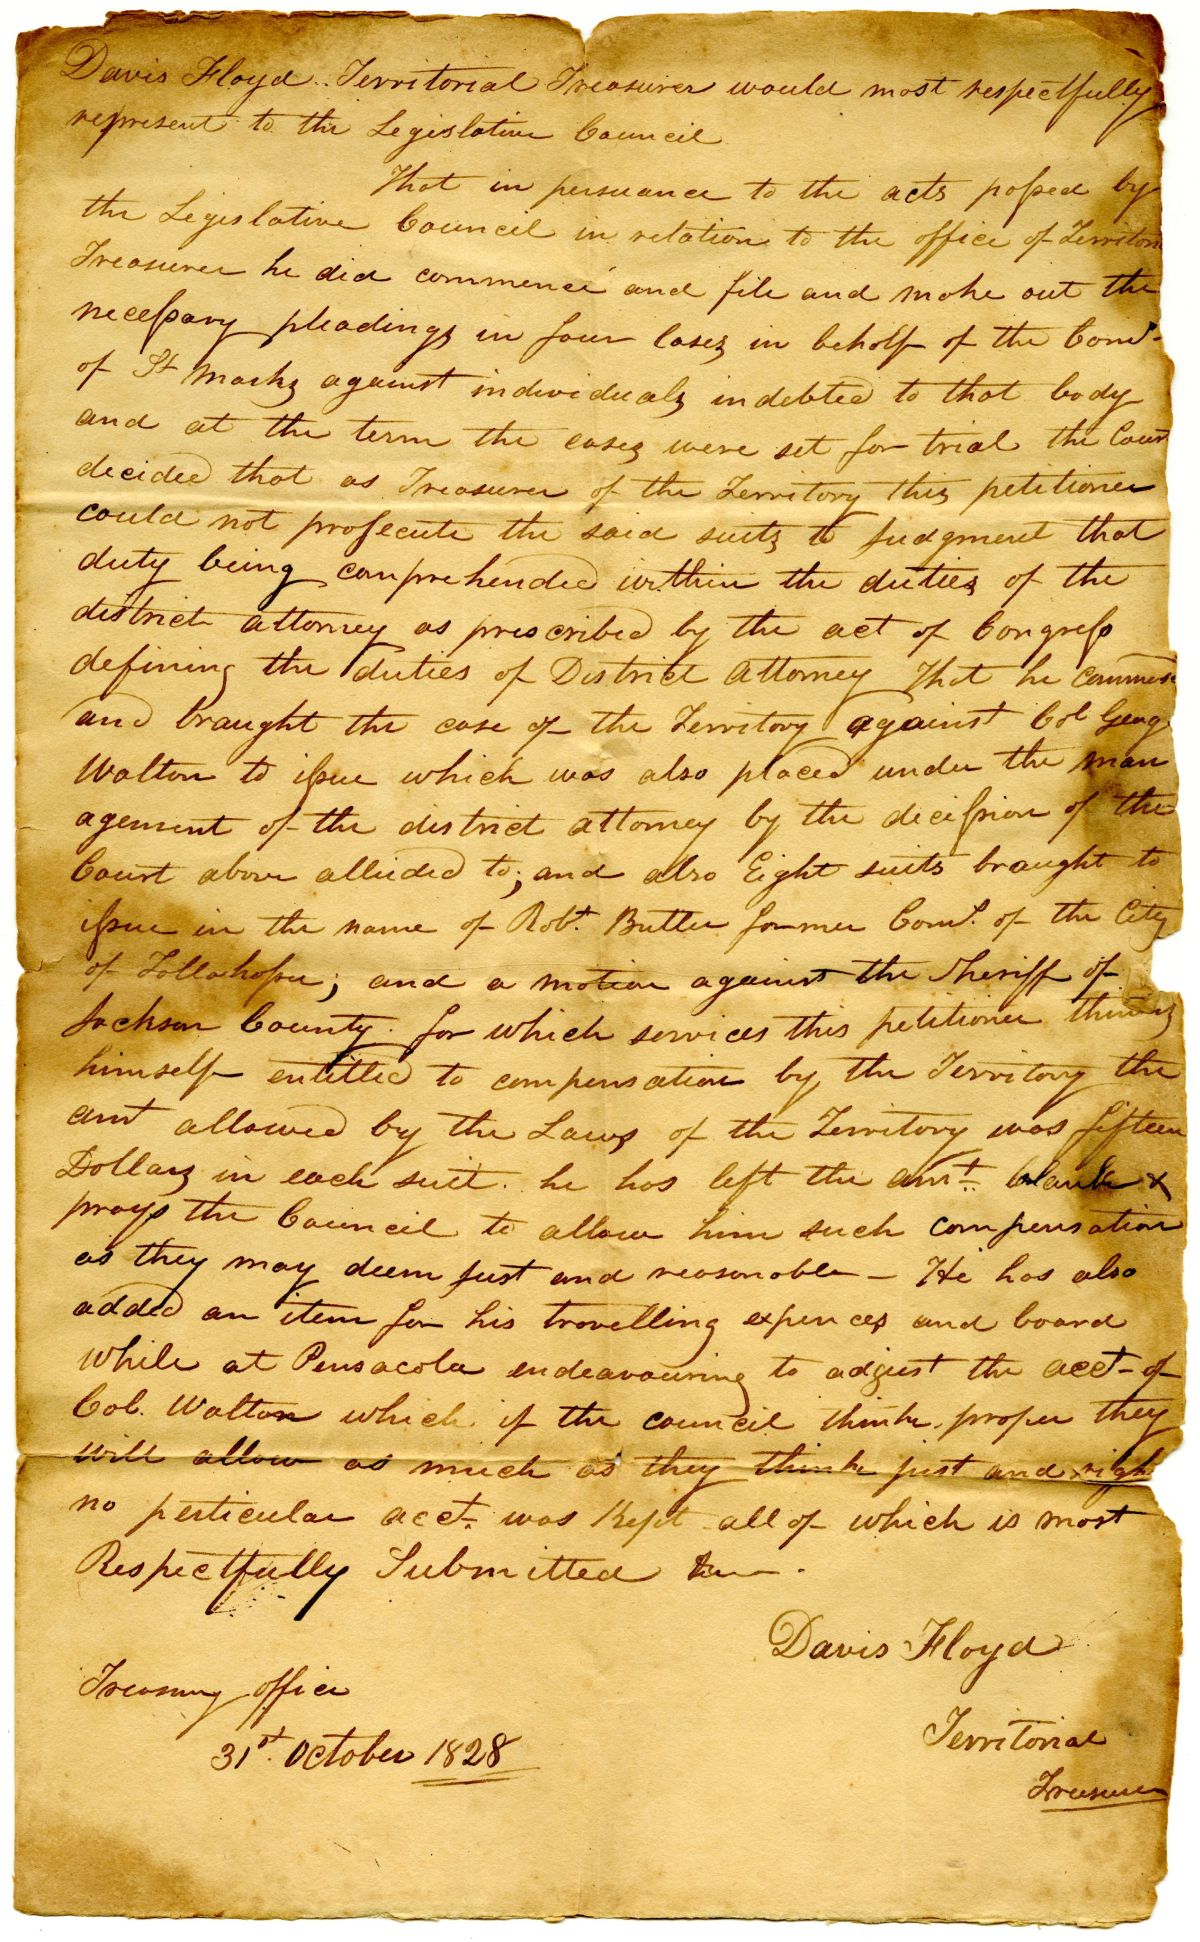 Davis Floyd.. Territorial Treasurer would most respectfully
represent to the Legislative Council
That in persuance to the acts passed by
the Legislative Council in relation to the office of Territori
Treasurer he did commence and file and make out the
necessary pleadings in four cases in behalf of the Comr.
of St Marks against individuals indebted to that body
and at the term the cases were set for trial the Court
decided that as Treasurer of the Territory this petitioner
could not prosecute the said suits to judgment that
duty being comprehended within the duties of the
district attorney as prescribed by the act of Congress
defining the duties of District Attorney That he commenc
and braught the case of the Territory against Col Geog
Walton to issue which was also placed under the man
agement of the district attorney by the decission of the
Court above alluded to; and also Eight suits braught to
issue in the name of Robt. Butler former Comr. of the City
of Tallahassee; and a motion against the Sheriff of
Jackson County. for which services this petitioner thinks
himself entitled to compensation by the Territory the
amt allowed by the Laws of the Territory was fifteen
Dollars in each suit. he has left the amt. blank &
prays the Council to allow him such compensation
as they may deem just and reasonable – He has also
added an item for his travelling expences and board
while at Pensacola endeavouring to adjust the acct- of
Col. Walton which if the council think proper they
will allow as much as they think just and right
no perticular acct. was Kept all of which is most
Respectfully Submitted
Davis Floyd
Treasury office
31st. October 1828
Territorial
Treasurer